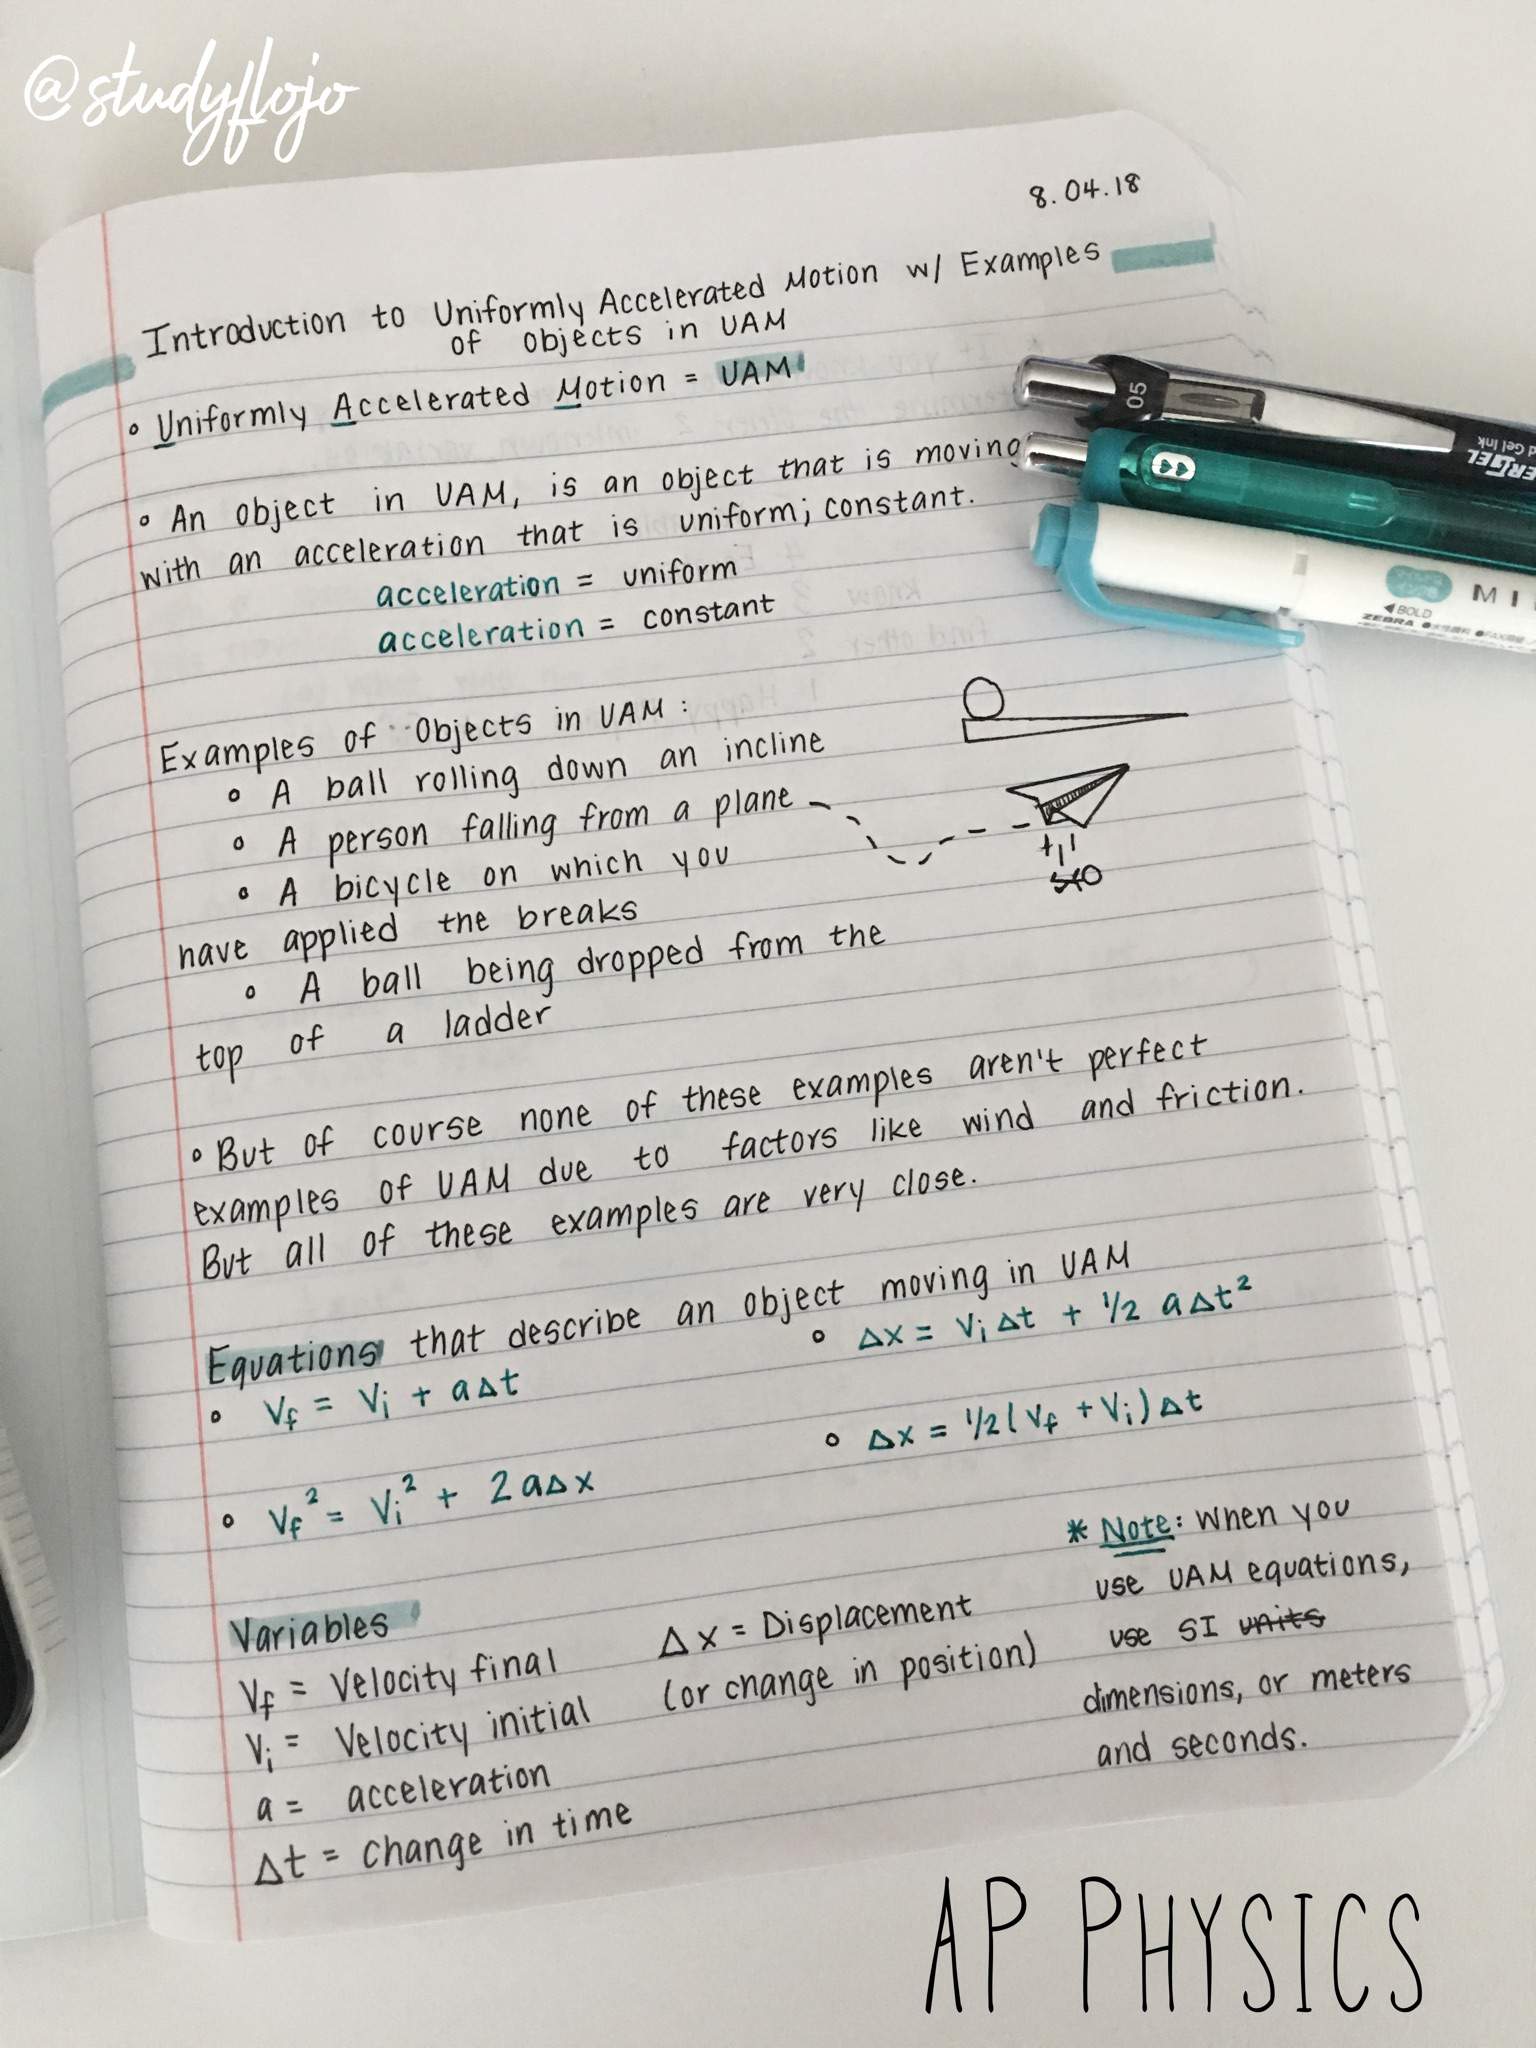 @studyflojo
8.04.18
Introduction to Uniformly Accelerated Motion w/ Examples
of objects in UAM
• Uniformly Accelerated Motion = UAM
• An object in UAM, is an object that is moving
with an acceleration that is uniform; constant.
acceleration = uniform
acceleration = constant
Examples of Objects in UAM:
• A ball rolling down an incline
• A person falling from a plane
• A bicycle on which you
have applied the breaks
• A ball being dropped from the
top of a ladder
• But of course none of these examples aren't perfect
examples of UAM due to factors like wind and friction.
But all of these examples are very close.
Equations that describe an object moving in UAM
• Vf = Vi + aΔt
• Δx = ViΔt + 1/2 aΔt²
• Vf² = Vi² + 2aΔx
• Δx = 1/2(Vf + Vi)Δt
Variables
Vf = Velocity final
Vi = Velocity initial
a = acceleration
Δt = change in time
Δx = Displacement
(or change in position)
* Note: When you
use UAM equations,
use SI units
dimensions, or meters
and seconds.
05
Gel Ink
ERGEL
BOLD
ZEBRA
MI
AP PHYSICS